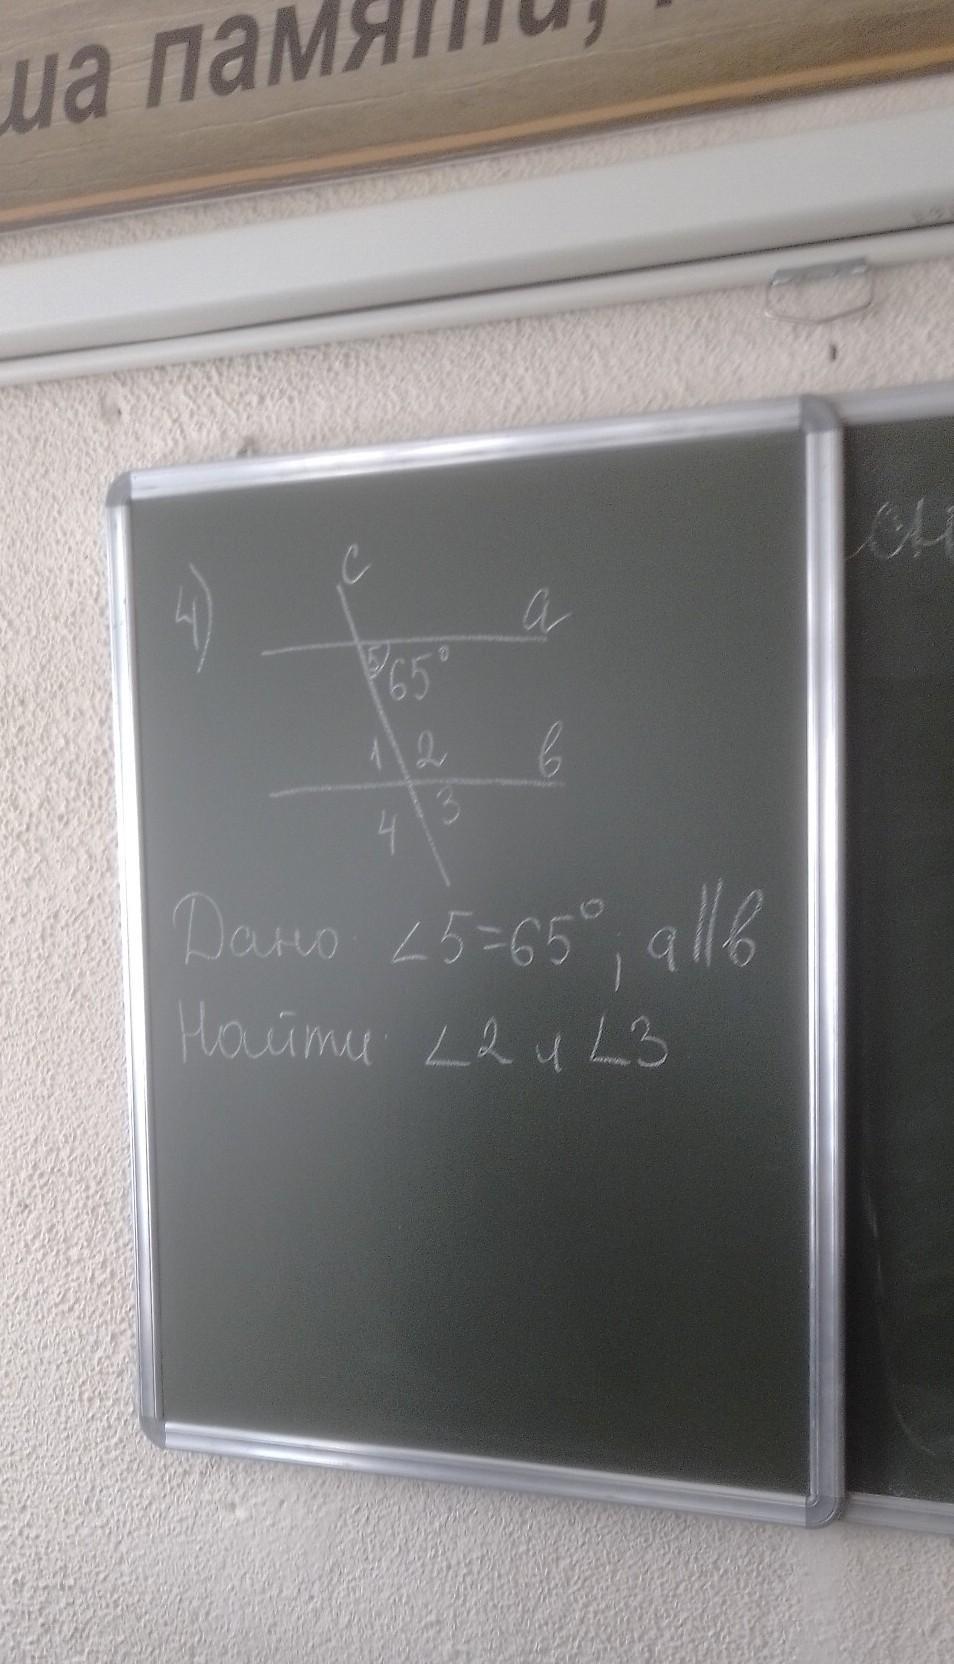 памяти,
4)
c
a
5 65°
1 2
b
4 3
Дано: ∠5=65°; a||b
Найти: ∠2 и ∠3